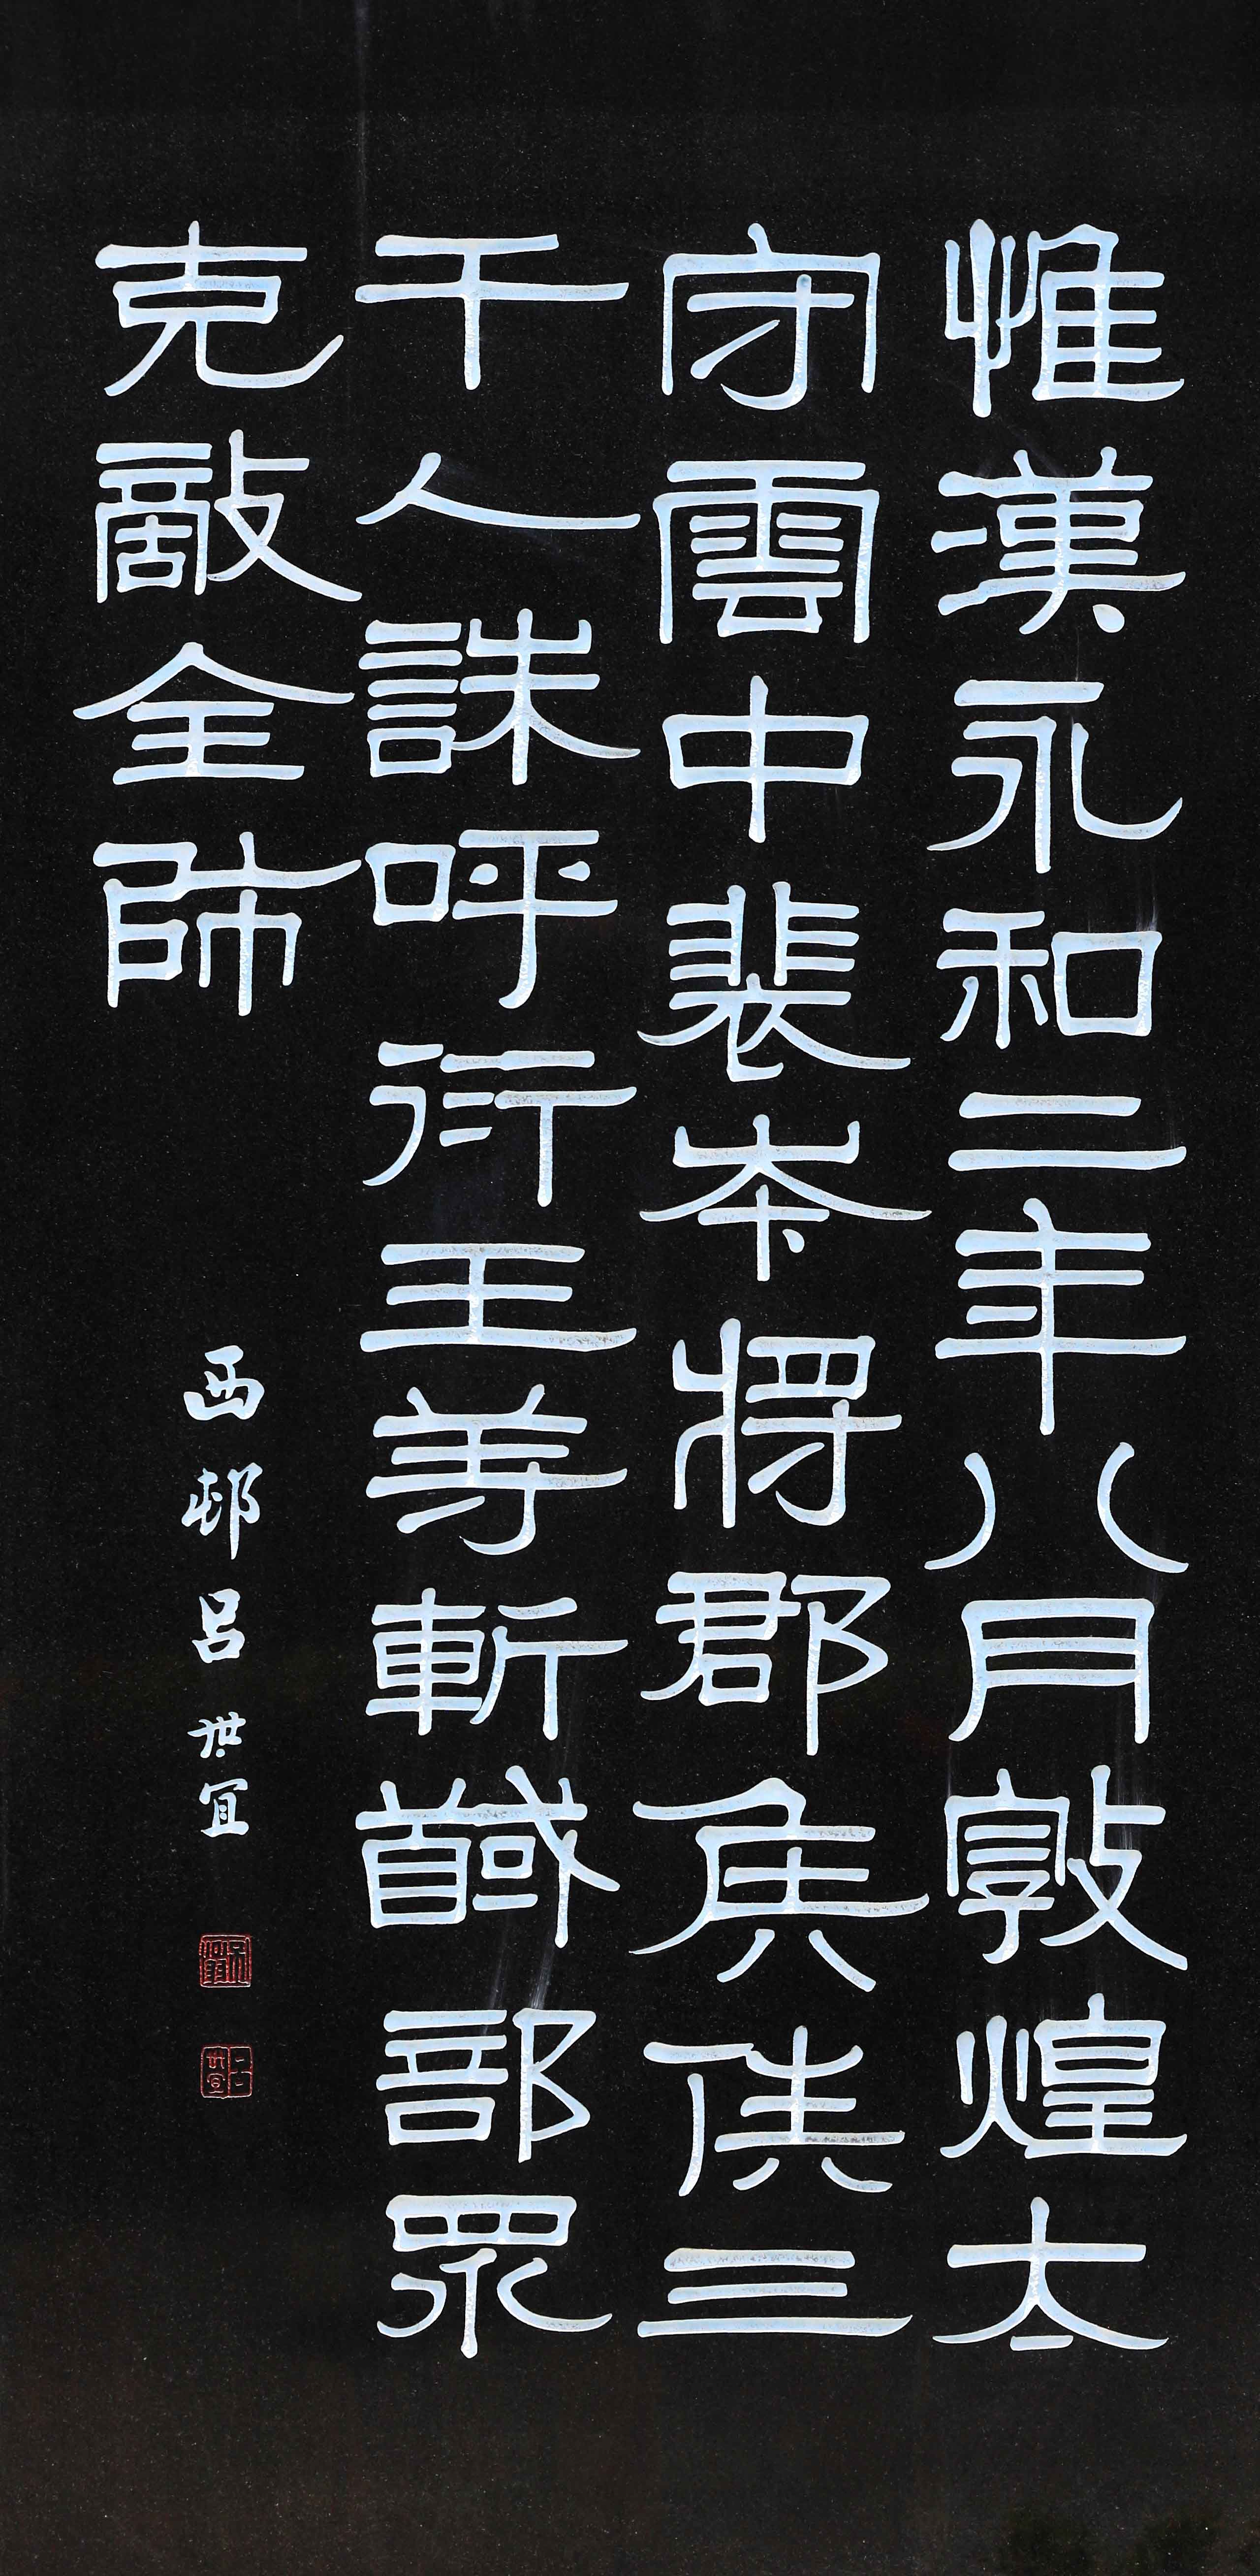 惟漢永和二年八月敦煌太
守雲中裴岑將郡兵三
千人誅呼衍王等斬馘部眾
克敵全師
西邨呂世宜
呂世宜